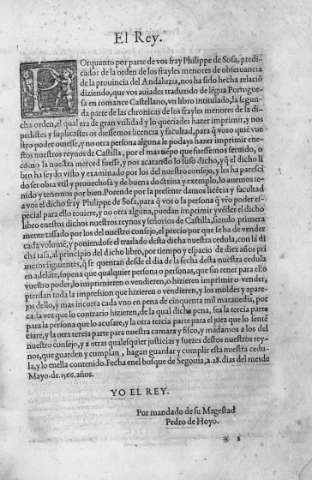 El Rey.
Porquanto por parte de vos fray Philippe de Sosa, predi-
cador de la orden de los frayles menores de obseruancia
de la prouincia del Andaluzia, nos ha sido hecha relaciō
diziendo, que vos auiades traduzido de lēgua Portugue-
sa en romance Castellano, vn libro intitulado, la segun-
da parte de las chronicas de los frayles menores de la di-
cha orden, el qual era de gran vtilidad y lo queriades hazer imprimir, y nos
pedistes y suplicastes os diessemos licencia y facultad, para q̄ vos o quiē vue-
stro poder ouiesse, y no otra persona alguna le podays hazer imprimir en e-
stos nuestros reynos de Castilla, por el tiempo que fuessemos seruido, o
como la nuestra merced fuesse, y nos acatando lo suso dicho, y q̄ el dicho li
bro ha sydo visto y examinado por los del nuestro consejo, y les ha pareci-
do ser obra vtil y prouechosa y de buena doctrina y exemplo, lo auemos te-
nido y tenemos por bien. Porende por la presente damos licēcia y facultad
a vos el dicho fray Philippe de Sosa, para q̄ vos o la persona q̄ vr̄o poder es-
pecial para ello touiere, y no otra alguna, puedan imprimir y vēder el dicho
libro en estos dichos nuestros reynos y señorios de Castilla, siendo primera
mente tassado por los del nuestro consejo, el precio por que se ha de vender
cada volumē, y poniendose el traslado desta dicha nuestra cedula, con la di
cha tassa, al principio del dicho libro, por tiempo y espacio de diez años pri
meros siguientes, q̄ se quentan desde el dia de la fecha desta nuestra cedula
en adelāte, so pena que qualquier persona o personas, que sin tener para ello
vuestro poder, lo imprimieren o vendieren, o hizieren imprimir o vender,
pierdan toda la impression que hizieren o vendieren, y los moldes y apare-
jos dello, y mas incurra cada vno en pena de cinquenta mil marauedis, por
cada vez que lo contrario hizieren, de la qual dicha pena, sea la tercia parte
para la persona que lo acusare, y la otra tercia parte para el juez que lo sentē
ciare, y la otra tercia parte para nuestra camara y fisco, y mādamos a los del
nuestro consejo, y a otras qualesquier justicias y fuezes destos nuestros rey-
nos, que guarden y cumplan, hagan guardar y cumplir esta nuestra cedu-
la, y lo en ella contenido. Fecha en el bosque de Segouia, a 28. dias del mes de
Mayo de. 1566. años.
YO EL REY.
Por mandado de su Magestad
Pedro de Hoyo.